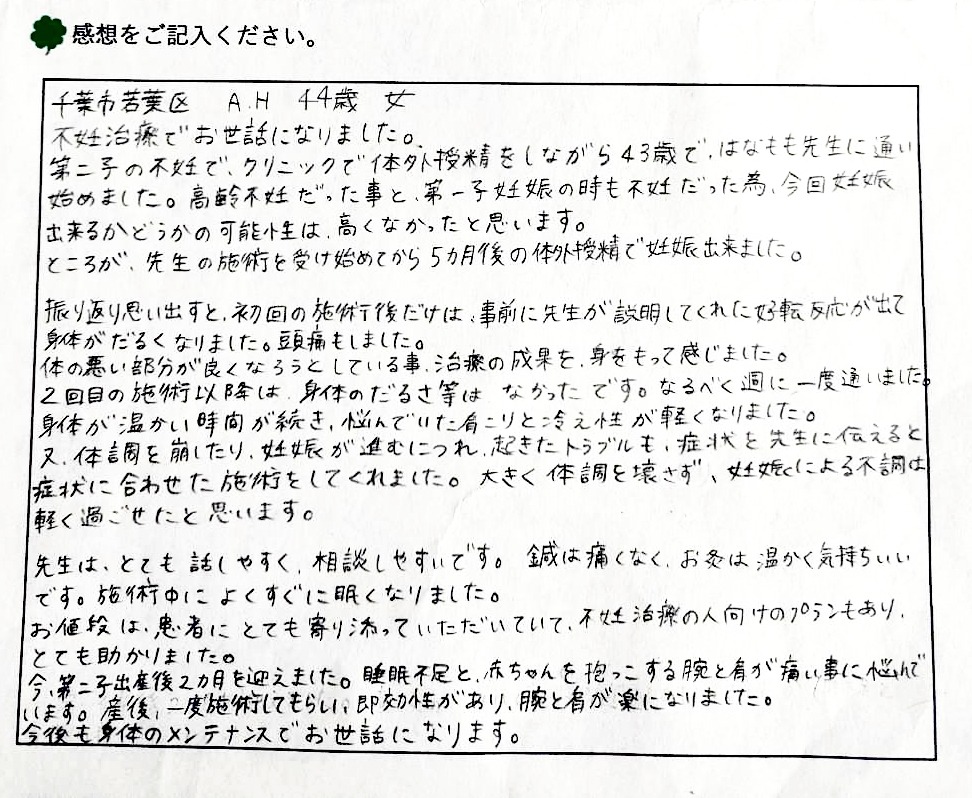 感想をご記入ください。
千葉市若葉区 A.H 44歳 女
不妊治療でお世話になりました。
第二子の不妊で、クリニックで体外授精をしながら43歳で、はなもも先生に通い
始めました。高齢不妊だった事と、第一子妊娠の時も不妊だった為、今回妊娠
出来るかどうかの可能性は、高くなかったと思います。
ところが、先生の施術を受け始めてから5カ月後の体外授精で妊娠出来ました。
振り返り思い出すと、初回の施術後だけは、事前に先生が説明してくれた好転反応が出て
身体がだるくなりました。頭痛もしました。
体の悪い部分が良くなろうとしている事、治療の成果を、身をもって感じました。
2回目の施術以降は、身体のだるさ等は なかったです。なるべく週に一度通いました。
身体が温かい時間が続き、悩んでいた肩こりと冷え性が軽くなりました。
又、体調を崩したり、妊娠が進むにつれ、起きたトラブルも、症状を先生に伝えると
症状に合わせた施術をしてくれました。大きく体調を壊さず、妊娠による不調は
軽く過ごせたと思います。
先生は、とても話しやすく、相談しやすいです。鍼は痛くなく、お灸は温かく気持ちいい
です。施術中によくすぐに眠くなりました。
お値段は、患者にとても寄り添っていただいていて、不妊治療の人向けのプランもあり、
とても助かりました。
今、第二子出産後2カ月を迎えました。睡眠不足と、赤ちゃんを抱っこする腕と肩が痛い事に悩んで
います。産後、一度施術してもらい、即効性があり、腕と肩が楽になりました。
今後も身体のメンテナンスでお世話になります。